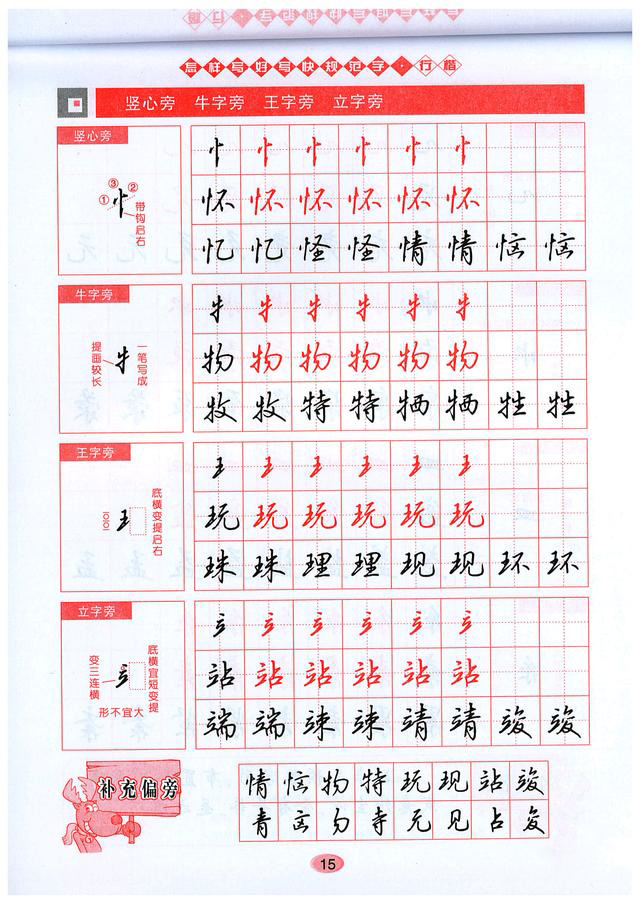 怎样写好写快规范字·行楷
竖心旁 牛字旁 王字旁 立字旁
竖心旁
① ③ ②
带钩启右
忄 忄 忄 忄 忄 忄
怀 怀 怀 怀 怀 怀
忆 忆 怪 怪 情 情 恼 恼
牛字旁
提画较长
一笔写成
牜 牜 牜 牜 牜 牜
物 物 物 物 物 物
牧 牧 特 特 牺 牺 牲 牲
王字旁
底横变提启右
王 王 王 王 王 王
玩 玩 玩 玩 玩 玩
珠 珠 理 理 现 现 环 环
立字旁
变三连横
底横宜短变提
形不宜大
立 立 立 立 立 立
站 站 站 站 站 站
端 端 竦 竦 靖 靖 竣 竣
补充偏旁
情 恼 物 特 玩 现 站 竣
青 㐫 勿 寺 元 见 占 夋
15